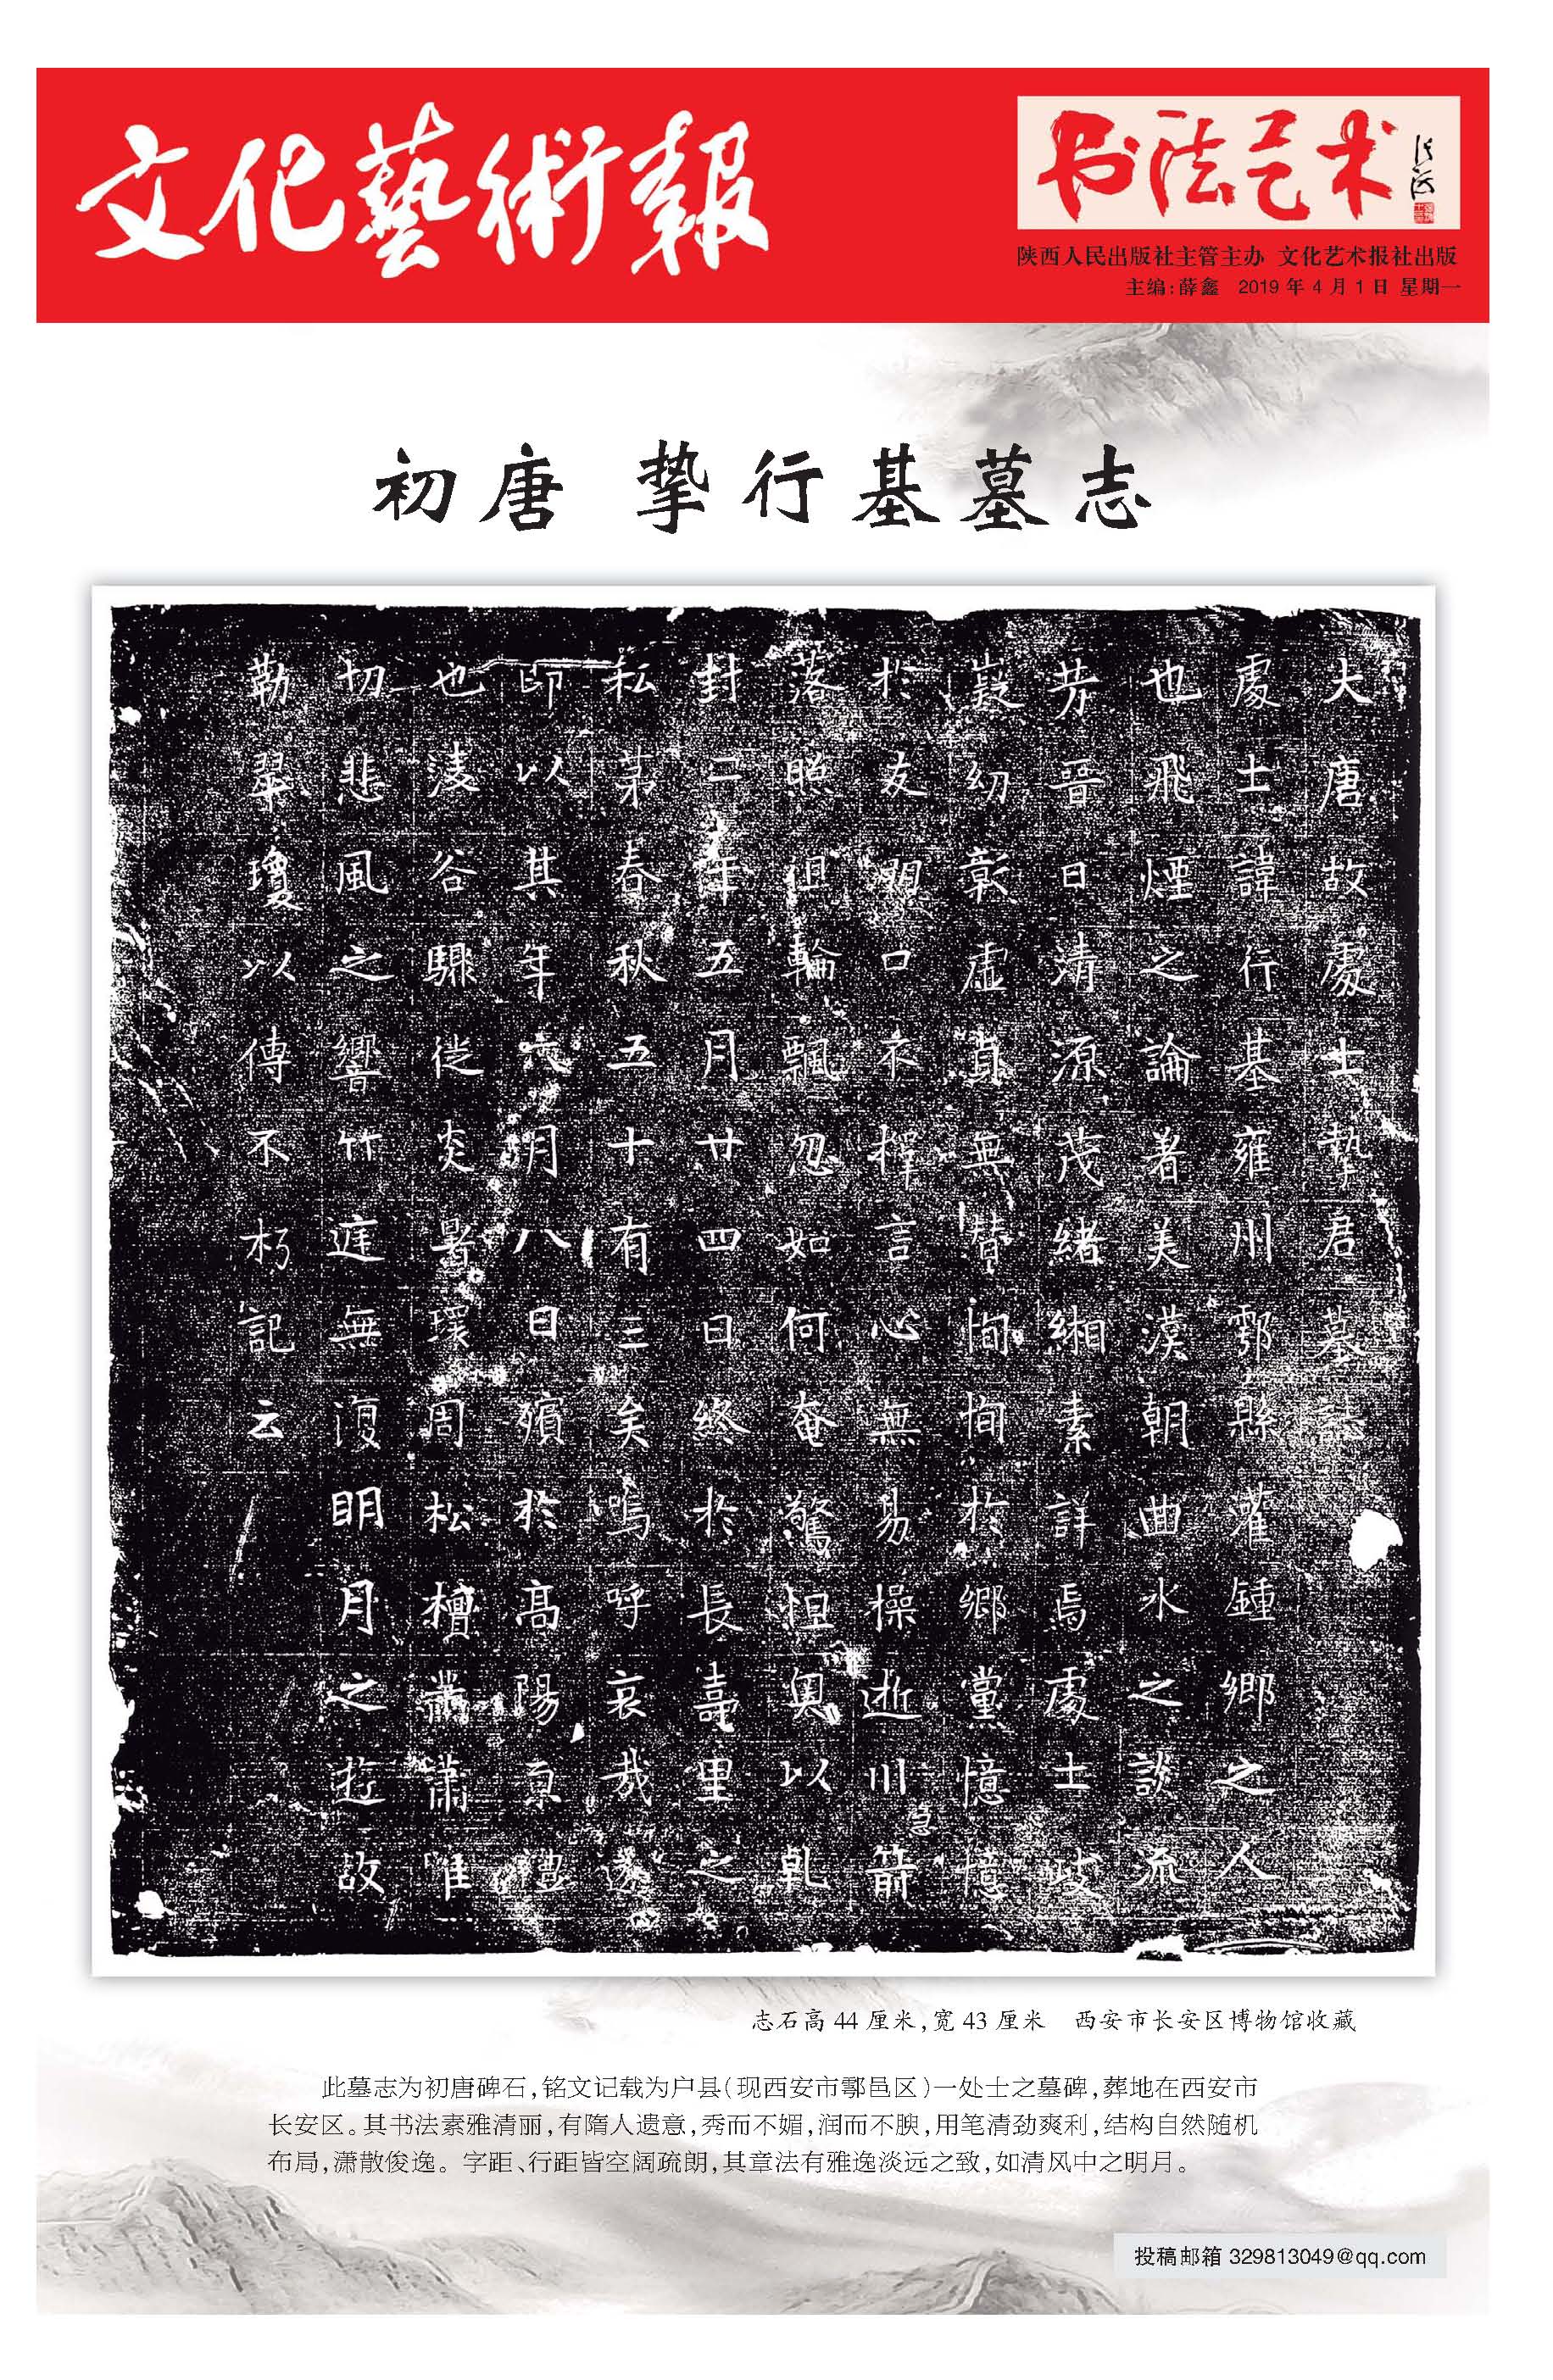 文化藝術報
书法艺术
陕西人民出版社主管主办 文化艺术报社出版
主编:薛鑫 2019年4月1日 星期一
初唐 挚行基墓志
大唐故處士摯君墓誌
處士諱行基雍州鄠縣灌鍾鄉之人
也飛煙之論著美漢朝曲水之談流
芳晉日清源茂緒緗素詳焉處士岐
嶷幼彰虛真無替恂恂於鄉黨憶憶
於友朋口不擇言心無易操逝川箭急
落照但輪飄忽如何奄驚怛奥以乹
封二年五月廿四日終於長壽里之
私第春秋五十有三矣嗚呼哀哉遂
即以其年六月八日殯於高陽原禮
也淒谷驟徙炎暑環周松檟肅蕭唯
切悲風之響竹庭無復明月之遊故
勒翠瓊以傳不朽記云
志石高44厘米,宽43厘米 西安市长安区博物馆收藏
此墓志为初唐碑石,铭文记载为户县(现西安市鄠邑区)一处士之墓碑,葬地在西安市
长安区。其书法素雅清丽,有隋人遗意,秀而不媚,润而不腴,用笔清劲爽利,结构自然随机
布局,潇散俊逸。字距、行距皆空阔疏朗,其章法有雅逸淡远之致,如清风中之明月。
投稿邮箱329813049@qq.com